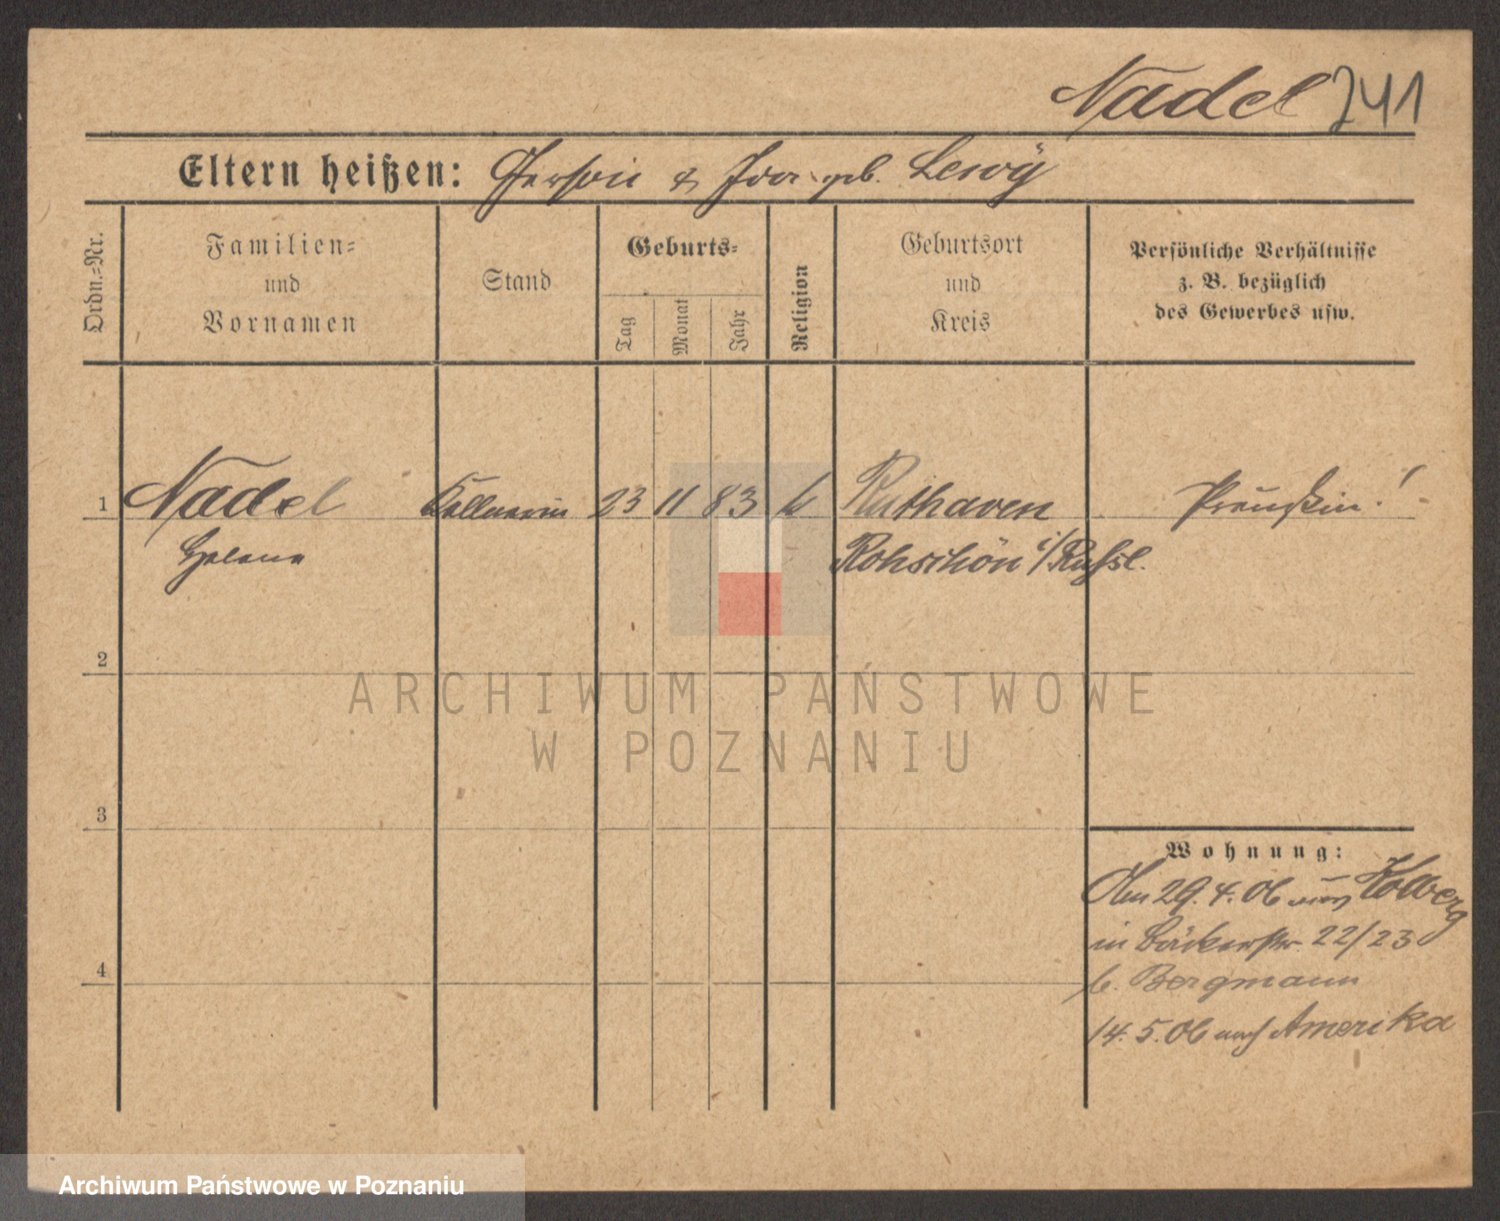 Nadel 241
Eltern heißen: Gerson & Ida geb. Lewy
Ordn.=Nr.
Familien=
und
Vornamen
Stand
Geburts=
Tag
Monat
Jahr
Religion
Geburtsort
und
Kreis
Persönliche Verhältnisse
z. B. bezüglich
des Gewerbes usw.
1 Nadel Kellnerin 23 11 83 Ruthaven Preußin!
Helene Rohschön i/Rußl.
2
3
4
Wohnung:
Am 29.4.06 von Kolberg
in Bäckerstr. 22/23
b. Bergmann
14.5.06 nach Amerika
ARCHIWUM PAŃSTWOWE
W POZNANIU
Archiwum Państwowe w Poznaniu